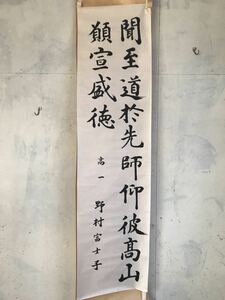 聞至道於先師仰彼髙山
願宣盛徳
高一 野村富士子